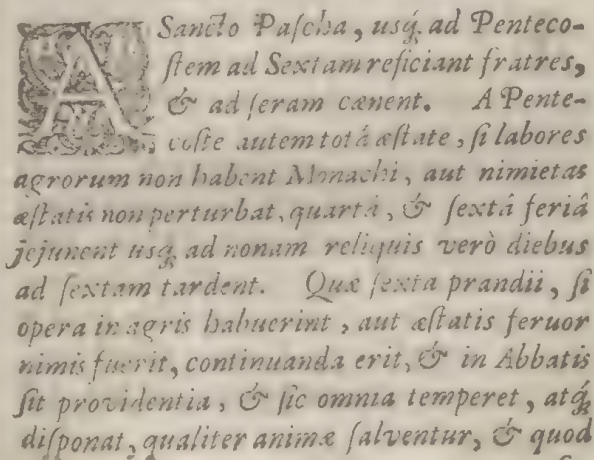 A Sancto Paſcha, uſq́; ad Penteco-
ſtem ad Sextam reficiant fratres,
& ad ſeram cænent. A Pente-
coſte autem totâ æſtate, ſi labores
agrorum non habent Monachi, aut nimietas
æſtatis non perturbat, quartâ, & ſextâ feriâ
jejunent uſq́; ad nonam reliquis verò diebus
ad ſextam tardent. Quæ ſexta prandii, ſi
opera in agris habuerint, aut æſtatis feruor
nimis fuerit, continuanda erit, & in Abbatis
ſit providentia, & ſic omnia temperet, atq́;
diſponat, qualiter animæ ſalventur, & quod